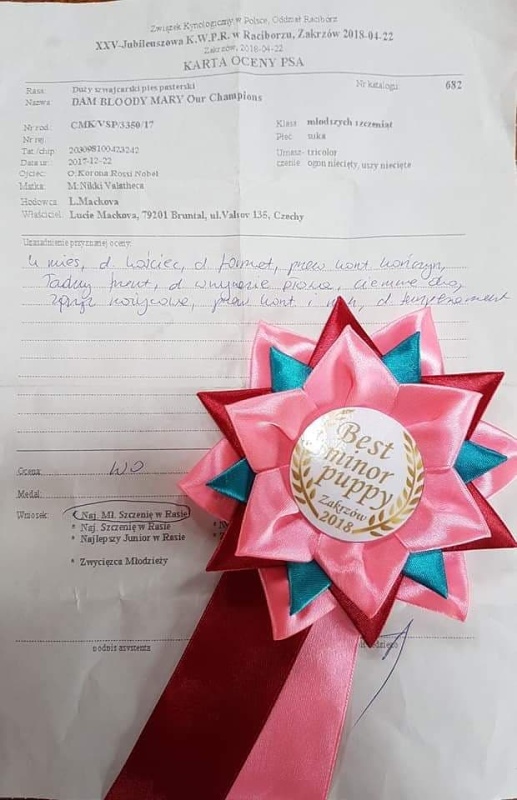 Związek Kynologiczny w Polsce, Oddział Racibórz
XXV-Jubileuszowa K.W.P.R. w Raciborzu, Zakrzów 2018-04-22
Zakrzów, 2018-04-22
KARTA OCENY PSA
Rasa: Duży szwajcarski pies pasterski Nr katalogu: 682
Nazwa: DAM BLOODY MARY Our Champions
Nr rod.: CMK/VSP/3350/17 Klasa: młodszych szczeniąt
Nr rej. Płeć suka
Tat./chip Umasz.: tricolor
Data ur.: 2017-12-22 czenie: ogon niecięty, uszy niecięte
Ojciec: O:Korona Rossi Nobel
Matka: M:Nikki Valatheca
Hodowca: L.Mackova
Właściciel: Lucie Mackova, 79201 Bruntal, ul.Valtov 135, Czechy
Uzasadnienie przyznanej oceny:
4 mies, d. kościec, d format, praw kont kończyn,
ładny front, d
zgryz nożycowy, praw kont i ruch, d temperament
Ocena: WO
Medal:
Wniosek: * Naj. Mł. Szczenię w Rasie
* Naj. Szczenię w Rasie
* Najlepszy Junior w Rasie
* Zwycięzca Młodzieży
podpis asystenta
Best
minor
puppy
Zakrzów
2018